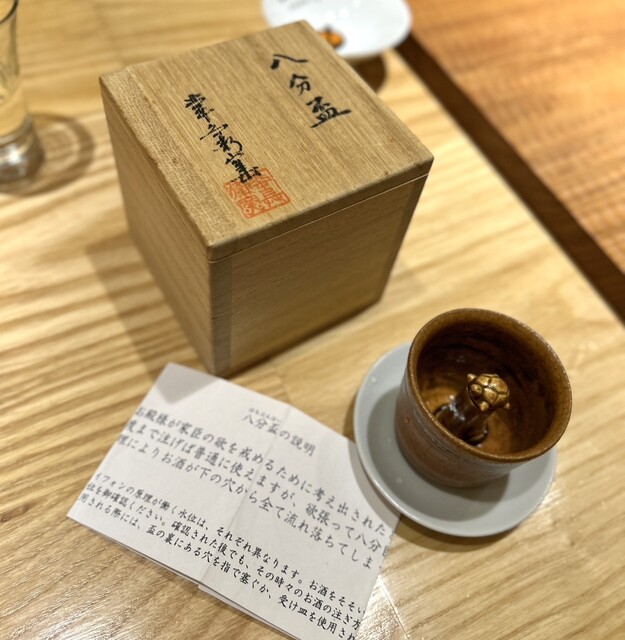 八分盃
はちぶんはい
八分盃の説明
お殿様が家臣の欲を戒めるために考え出された
度まで注げば普通に使えますが、欲張って八分
理によりお酒が下の穴から全て流れ落ちてしま
イフォンの原理が働く水位は、それぞれ異なります。お酒をそそい
位を御確認ください。確認された後でも、その時々のお酒の注ぎ方
用される際には、盃の裏にある穴を指で塞ぐか、受け皿を使用され